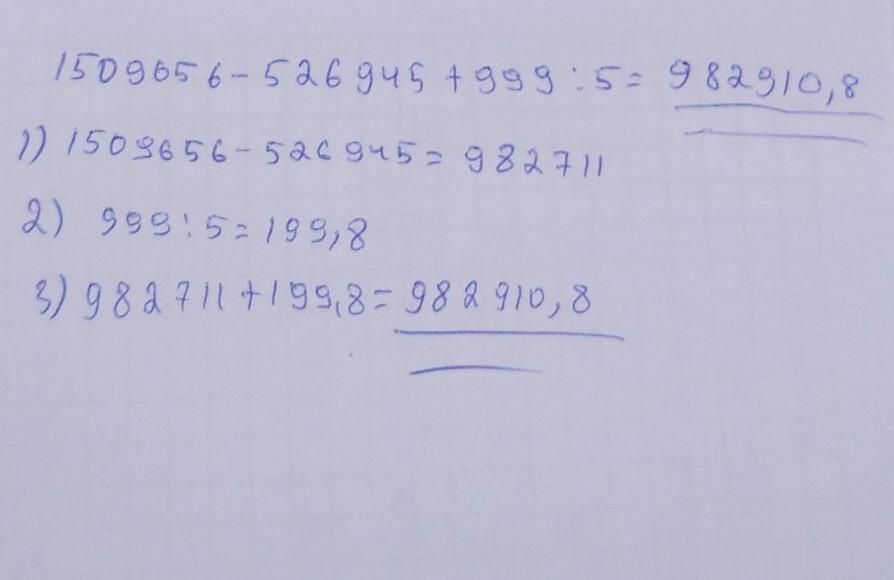 1509656-526945+999:5=982910,8
1) 1509656-526945=982711
2) 999:5=199,8
3) 982711+199,8=982910,8